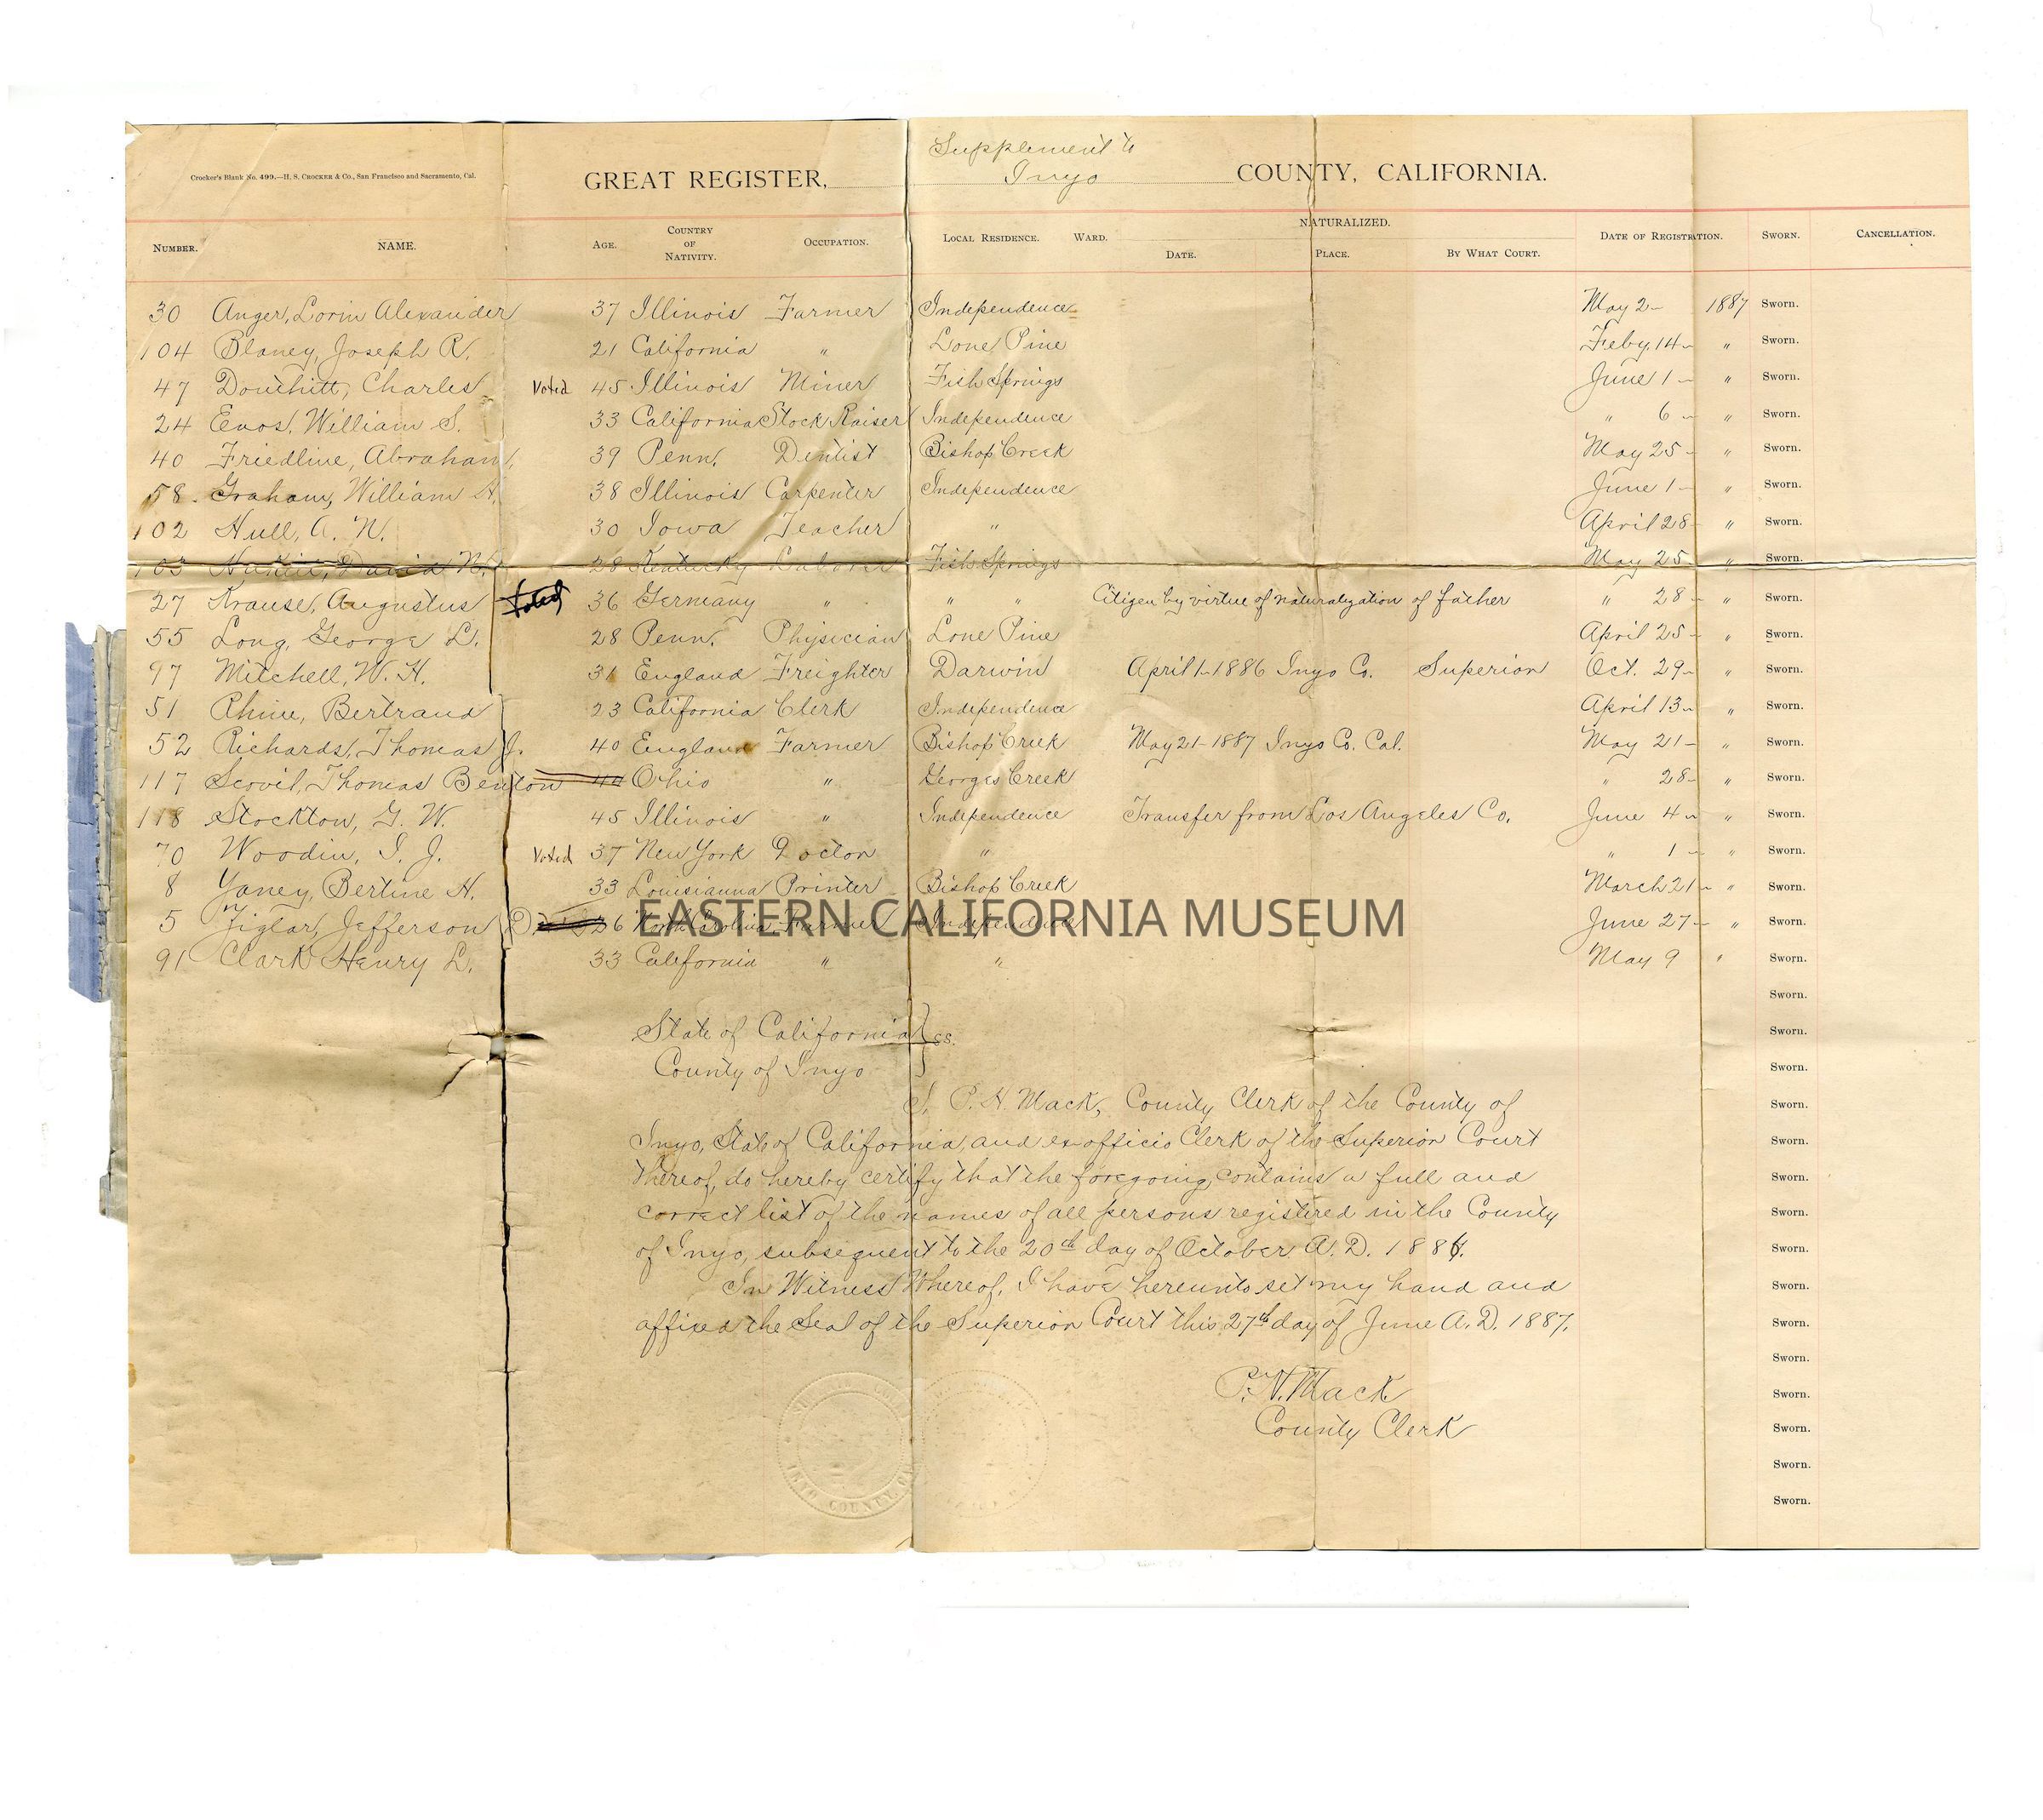 Supplement to
Crocker's Blank No. 499.—H. S. CROCKER & Co., San Francisco and Sacramento, Cal.
GREAT REGISTER, Inyo COUNTY, CALIFORNIA.
NATURALIZED.
NUMBER. NAME. AGE. COUNTRY OF NATIVITY. OCCUPATION. LOCAL RESIDENCE. WARD. DATE. PLACE. BY WHAT COURT. DATE OF REGISTRATION. SWORN. CANCELLATION.
30 Anger, Lorin Alexander 37 Illinois Farmer Independence May 2- 1887 Sworn.
104 Blaney, Joseph R. 21 California " Lone Pine Feby. 14- " Sworn.
47 Douthitt, Charles Voted 45 Illinois Miner Fish Springs June 1- " Sworn.
24 Enos, William S. 33 California Stock Raiser Independence " 6- " Sworn.
40 Friedline, Abraham, 39 Penn. Dentist Bishop Creek May 25- " Sworn.
58. Graham, William H. 38 Illinois Carpenter Independence June 1- " Sworn.
102 Hull, A. N. 30 Iowa Teacher " April 28- " Sworn.
103 David N. 28 Kentucky Laborer Fish Springs May 25 " Sworn.
27 Krause, Augustus Voted 36 Germany " " " Citizen by virtue of naturalization of father " 28- " Sworn.
55 Long, George L. 28 Penn. Physician Lone Pine April 25- " Sworn.
97 Mitchell, W. H. 31 England Freighter Darwin April 1-1886 Inyo Co. Superior Oct. 29- " Sworn.
51 Rhine, Bertrand 23 California Clerk Independence April 13- " Sworn.
52 Richards, Thomas J. 40 England Farmer Bishop Creek May 21-1887 Inyo Co. Cal. May 21- " Sworn.
117 Scovil, Thomas Benton 40 Ohio " Georges Creek " 28- " Sworn.
118 Stockton, G. W. 45 Illinois " Independence Transfer from Los Angeles Co. June 4- " Sworn.
70 Woodin, I. J. Voted 37 New York Doctor " " 1- " Sworn.
8 Yaney, Bertine H. 33 Louisianna Printer Bishop Creek March 21- " Sworn.
5 Ziglar, Jefferson 26 North Carolina Farmer Independence June 27- " Sworn.
EASTERN CALIFORNIA MUSEUM
91 Clark Henry L. 33 California " " May 9 " Sworn.
Sworn.
State of California } ss. Sworn.
County of Inyo Sworn.
I, P. H. Mack, County Clerk of the County of Sworn.
Inyo, State of California, and ex-officio Clerk of the Superior Court Sworn.
thereof, do hereby certify that the foregoing contains a full and Sworn.
correct list of the names of all persons registered in the County Sworn.
of Inyo, subsequent to the 20th day of October A. D. 1886. Sworn.
In Witness Whereof, I have hereunto set my hand and Sworn.
affixed the Seal of the Superior Court this 27th day of June A. D. 1887. Sworn.
Sworn.
P. H. Mack Sworn.
County Clerk Sworn.
Sworn.
INYO COUNTY, CAL Sworn.